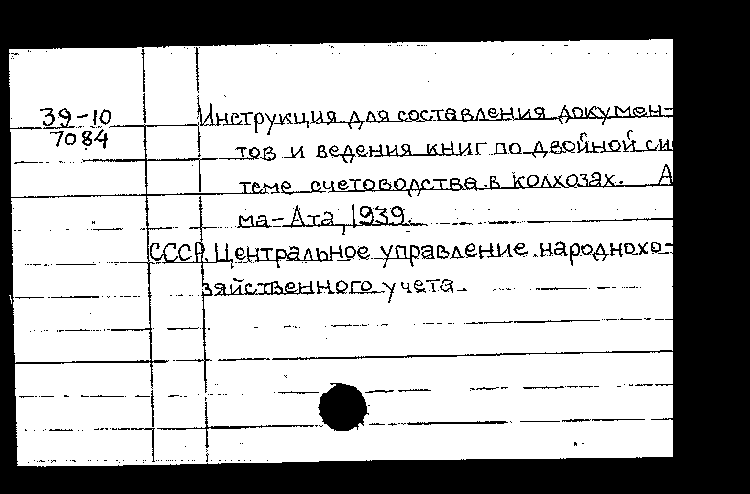 39-10
7084
Инструкция для составления докумен-
тов и ведения книг по двойной си
теме счетоводства в колхозах. А
ма-Ата, 1939.
СССР. Центральное управление народнохо-
зяйственного учета.